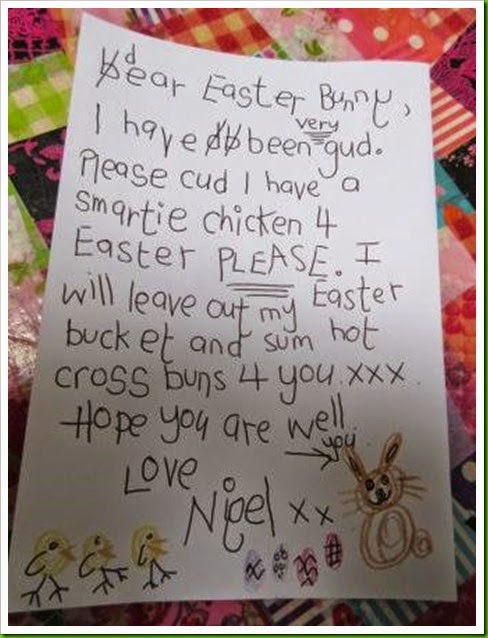 dear Easter Bunny,
I have been very gud.
Please cud I have a
smartie chicken 4
Easter PLEASE. I
will leave out my Easter
bucket and sum hot
cross buns 4 you.xxx.
Hope you are well.
you
Love
Nigel xx